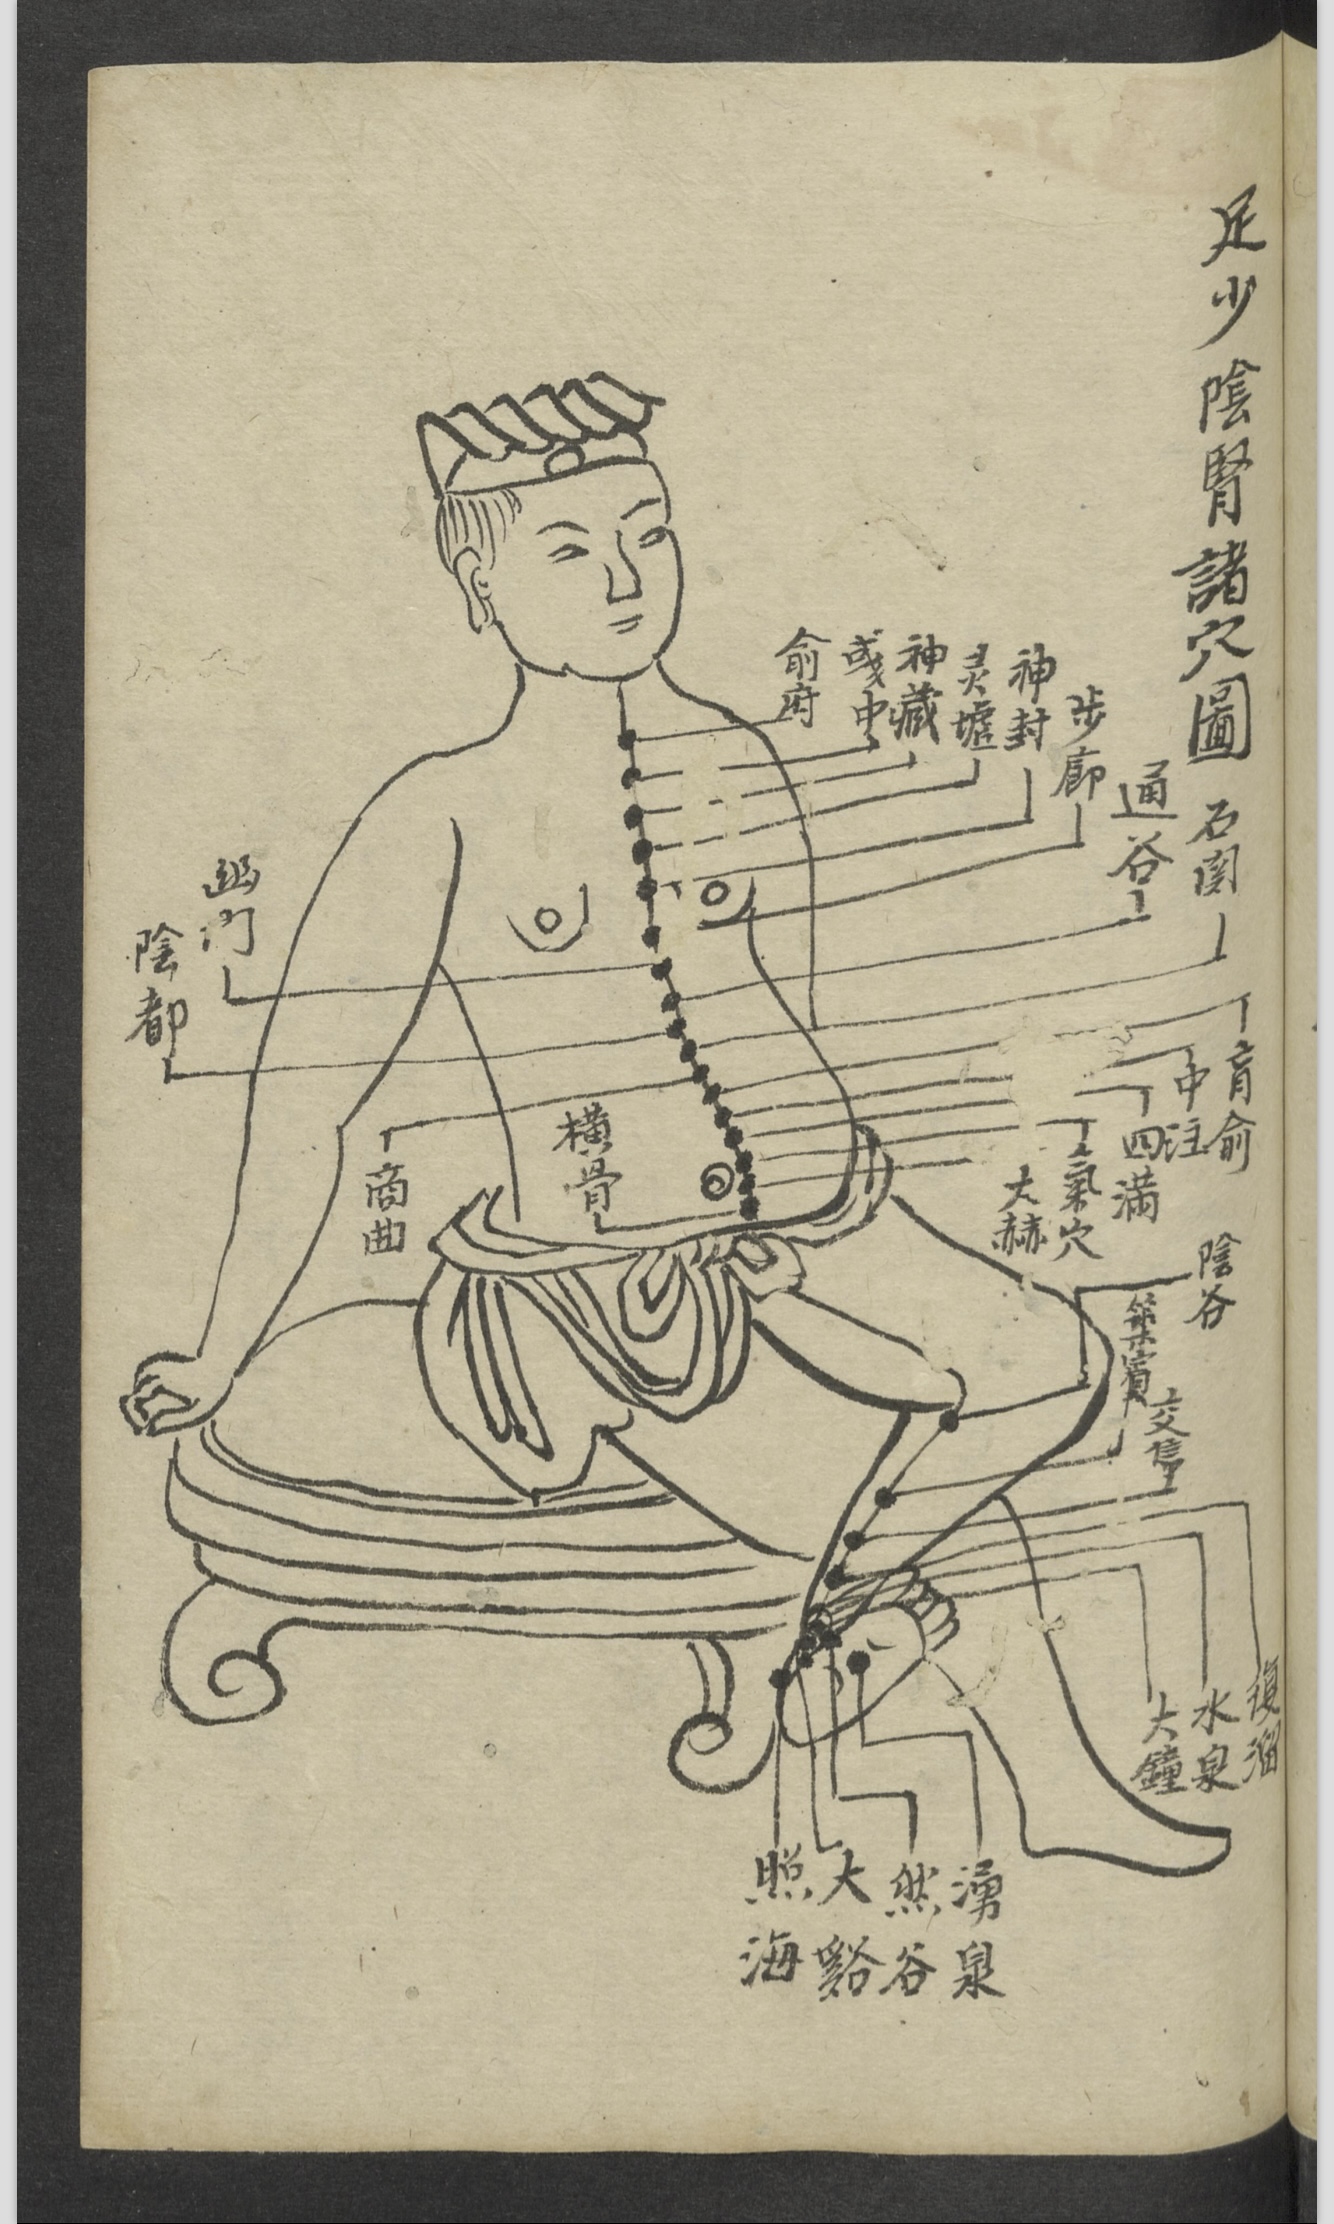 足少陰腎諸穴圖
俞府
彧中
神藏
灵墟
神封
步廊
通谷
石関
幽門
陰都
商曲
肓俞
中注
四滿
氣穴
大赫
橫骨
陰谷
築賓
交信
復溜
水泉
大鐘
照海
大谿
然谷
湧泉